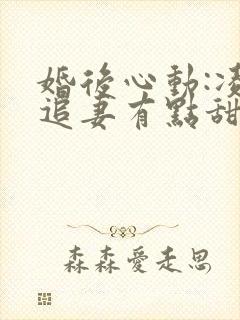 婚後心動:
追妻有點甜
森森愛走思